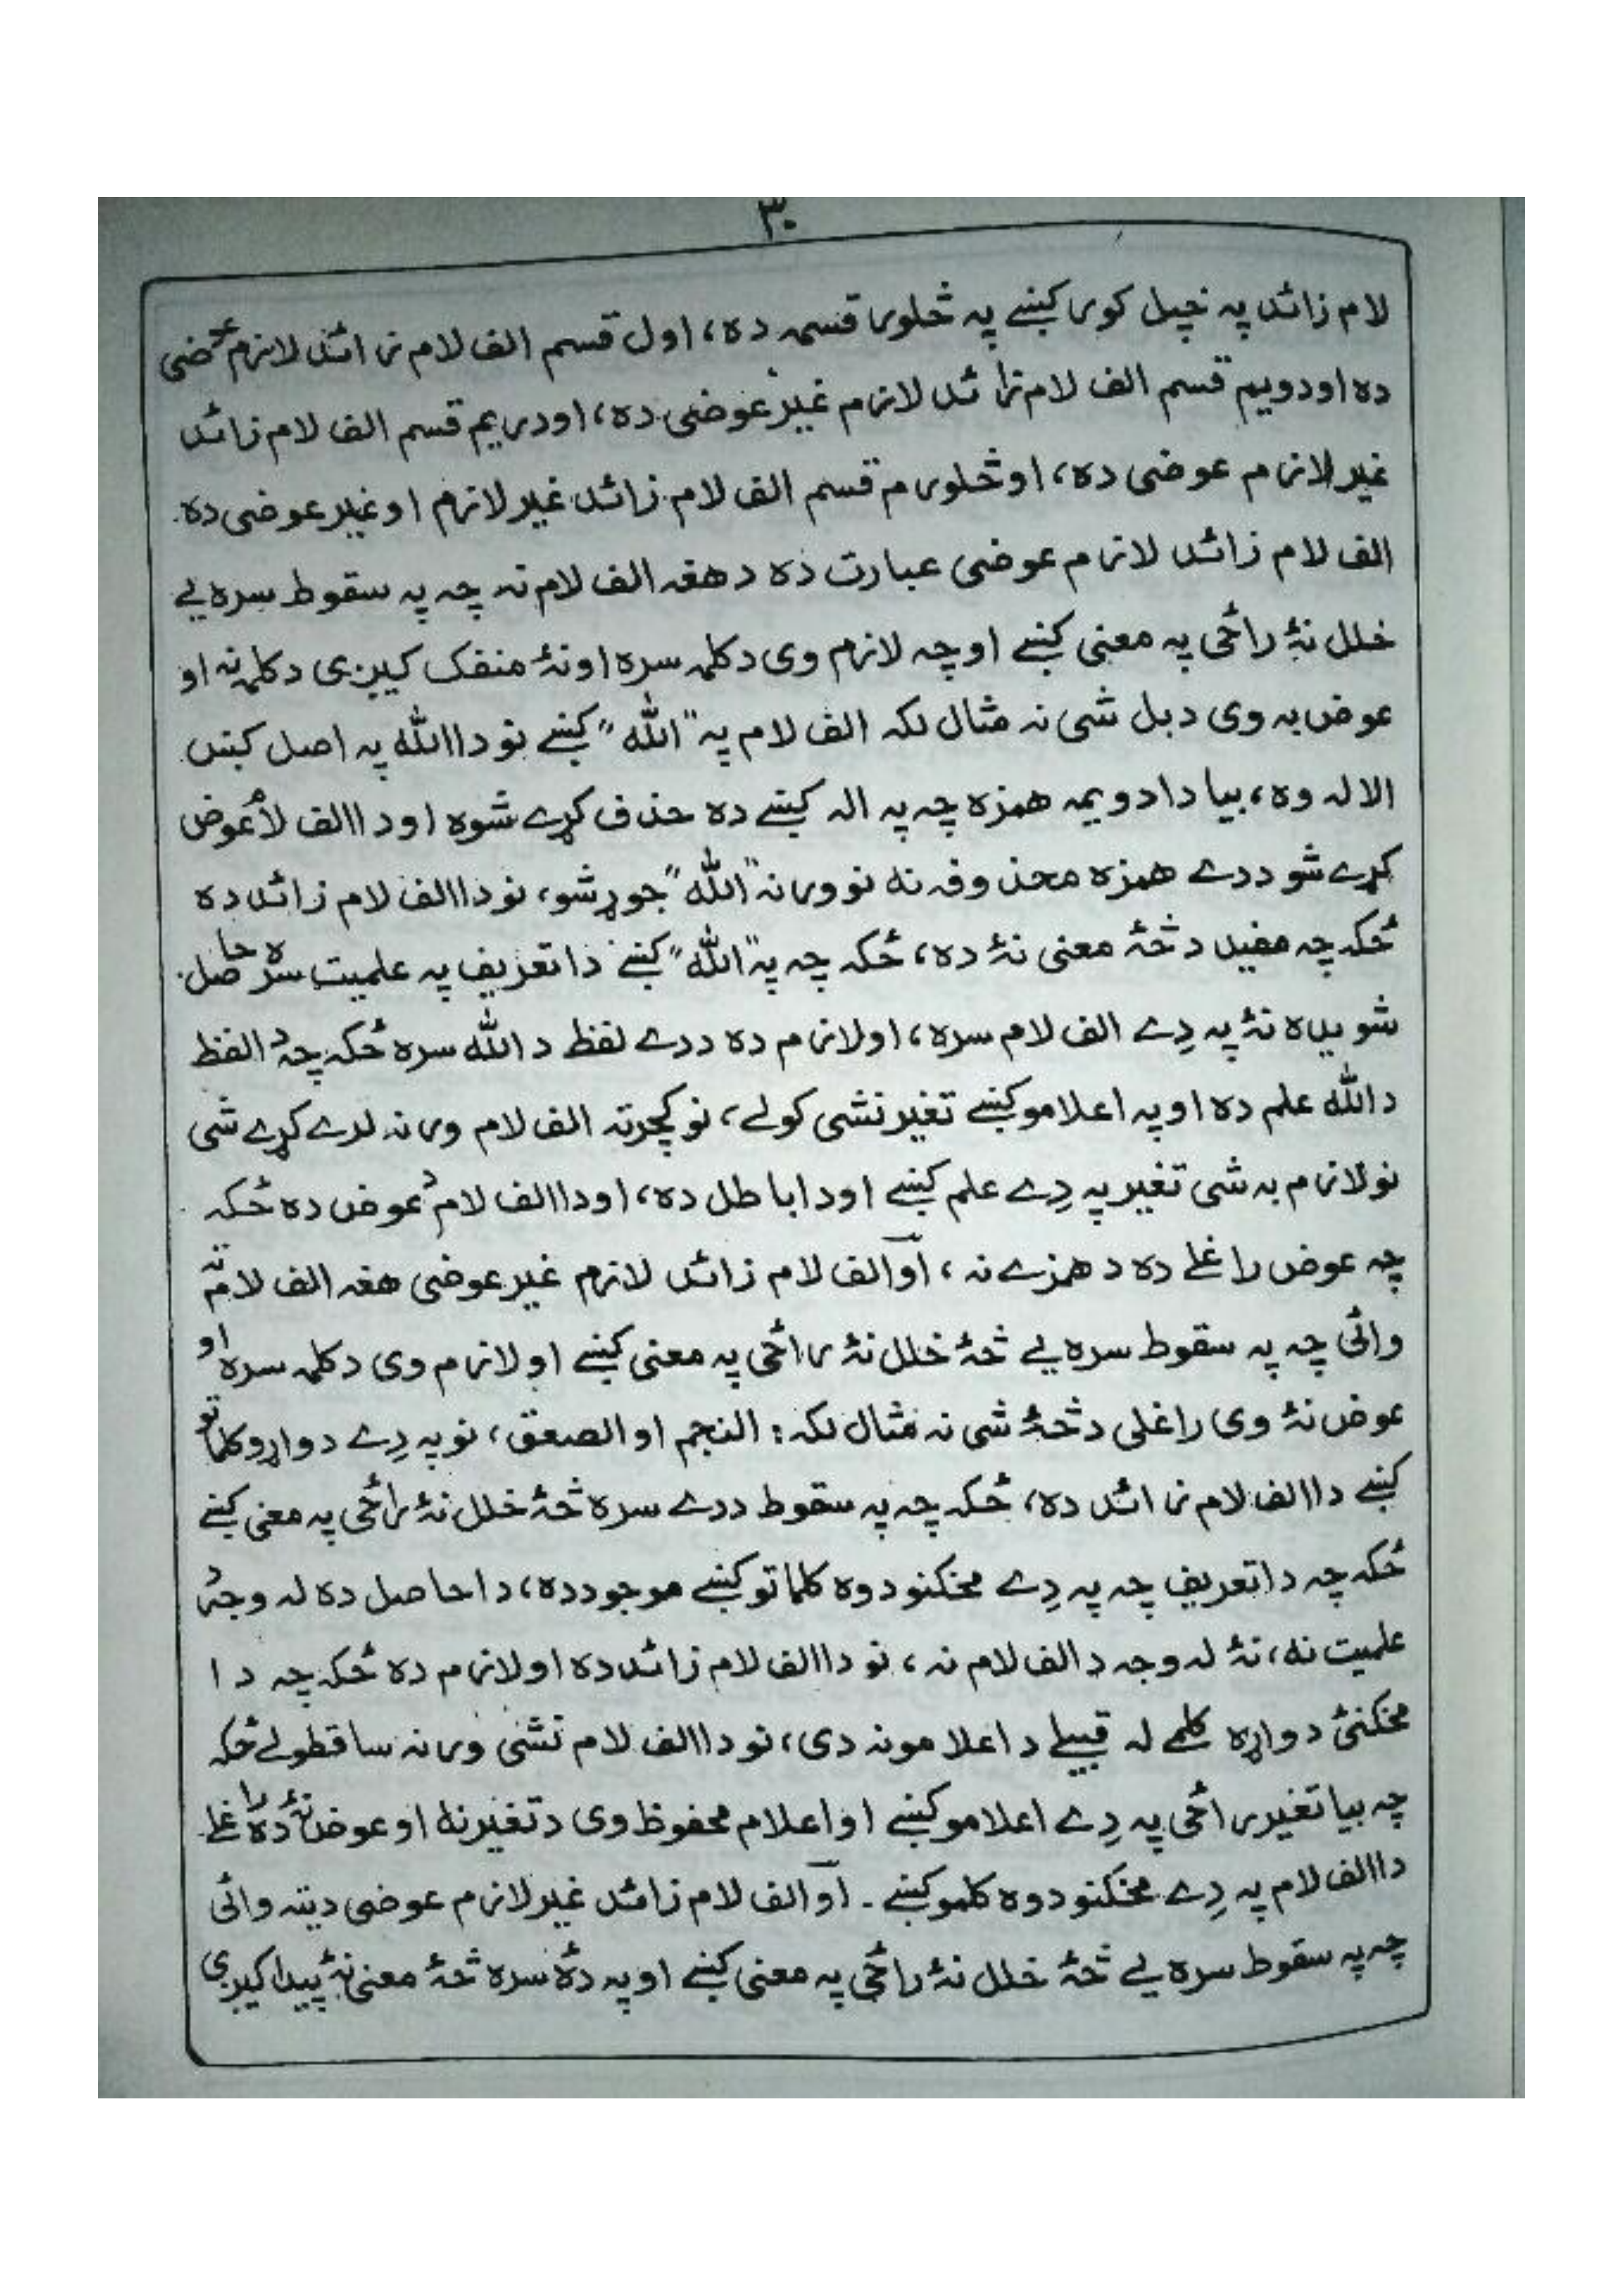 ۳۰
لام زائد په خپل کور کښے په څلور قسمه ده، اول قسم الف لام زائد لازم عوضی
ده او دویم قسم الف لام زائد لازم غیر عوضی ده، او دریم قسم الف لام زائد
غیر لازم عوضی ده، او څلورم قسم الف لام زائد غیر لازم او غیر عوضی ده.
الف لام زائد لازم عوضی عبارت ده د هغه الف لام نه چه په سقوط سره یے
خلل نۀ راځی په معنی کښے او چه لازم وی د کلمہ سره او نۀ منفک کیږی د کلمہ نه او
عوض به وی د بل شی نه مثال لکه الف لام په "الله" کښے نو دا الله په اصل کښ
الاله وه، بیا دا دویمه همزه چه په اله کښے ده حذف کړے شوه او دا الف لام عوض
کړے شو د دے همزه محذوفه نه نو ورنه "الله" جوړ شو، نو دا الف لام زائد ده
ځکه چه مفید د څۀ معنی نۀ ده، ځکه چه په "الله" کښے دا تعریف په علمیت سره حاصل
شویده نۀ په دِے الف لام سره، او لازم ده د دے لفظ د الله سره ځکه چه دا لفظ
د الله علم ده او په اعلامو کښے تغیر نشی کولے، نو کچرته الف لام ورنه لرے کړے شی
نو لازم به شی تغیر په دِے علم کښے او دا باطل ده، او دا الف لام د عوض ده ځکه
چه عوض راغلے ده د همزے نه، او الف لام زائد لازم غیر عوضی هغه الف لام ته
وائی چه په سقوط سره یے څۀ خلل نۀ راځی په معنی کښے او لازم وی د کلمہ سره او
عوض نۀ وی راغلی د څۀ شی نه مثال لکه: النجم او الصعق، نو په دِے دواړو کلماتو
کښے دا الف لام زائد ده، ځکه چه په سقوط د دے سره څۀ خلل نۀ راځی په معنی کښے
ځکه چه دا تعریف چه په دِے مخکنو دوه کلماتو کښے موجود ده، دا حاصل ده له وجہ د
علمیت نه، نۀ له وجه د الف لام نه، نو دا الف لام زائد ده او لازم ده ځکه چه دا
مخکنئ دواړه کلمے له قبیلے د اعلامو نه دی، نو دا الف لام نشی ورنه ساقطولے ځکه
چه بیا تغیر راځی په دِے اعلامو کښے او اعلام محفوظ وی د تغیر نه او عوض نۀ ده راغلے
دا الف لام په دِے مخکنو دوه کلمو کښے۔ او الف لام زائد غیر لازم عوضی دیته وائی
چه په سقوط سره یے څۀ خلل نۀ راځی په معنی کښے او په دۀ سره څۀ معنی نۀ پیدا کیږی